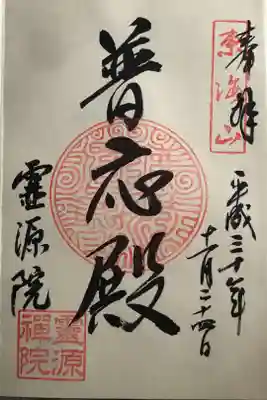 奉拝
東海山
平成三十年
十一月二十四日
普応殿
霊源院
霊源
禅院